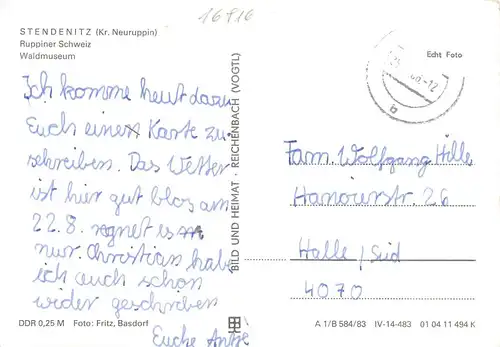 16916
STENDENITZ (Kr. Neuruppin)
Ruppiner Schweiz
Waldmuseum
Ich komme heut dazu
Euch einen Karte zu
schreiben. Das Wetter
ist hier gut blos am
22.8. regnet es
nur. Christian habe
ich auch schon
wider geschrieben
Euche Antje
DDR 0,25 M Foto: Fritz, Basdorf
BILD UND HEIMAT · REICHENBACH (VOGTL)
Echt Foto
Fam. Wolfgang Hille
Hanoierstr. 26
Halle / Süd
4070
A 1/B 584/83 IV-14-483 01 04 11 494 K